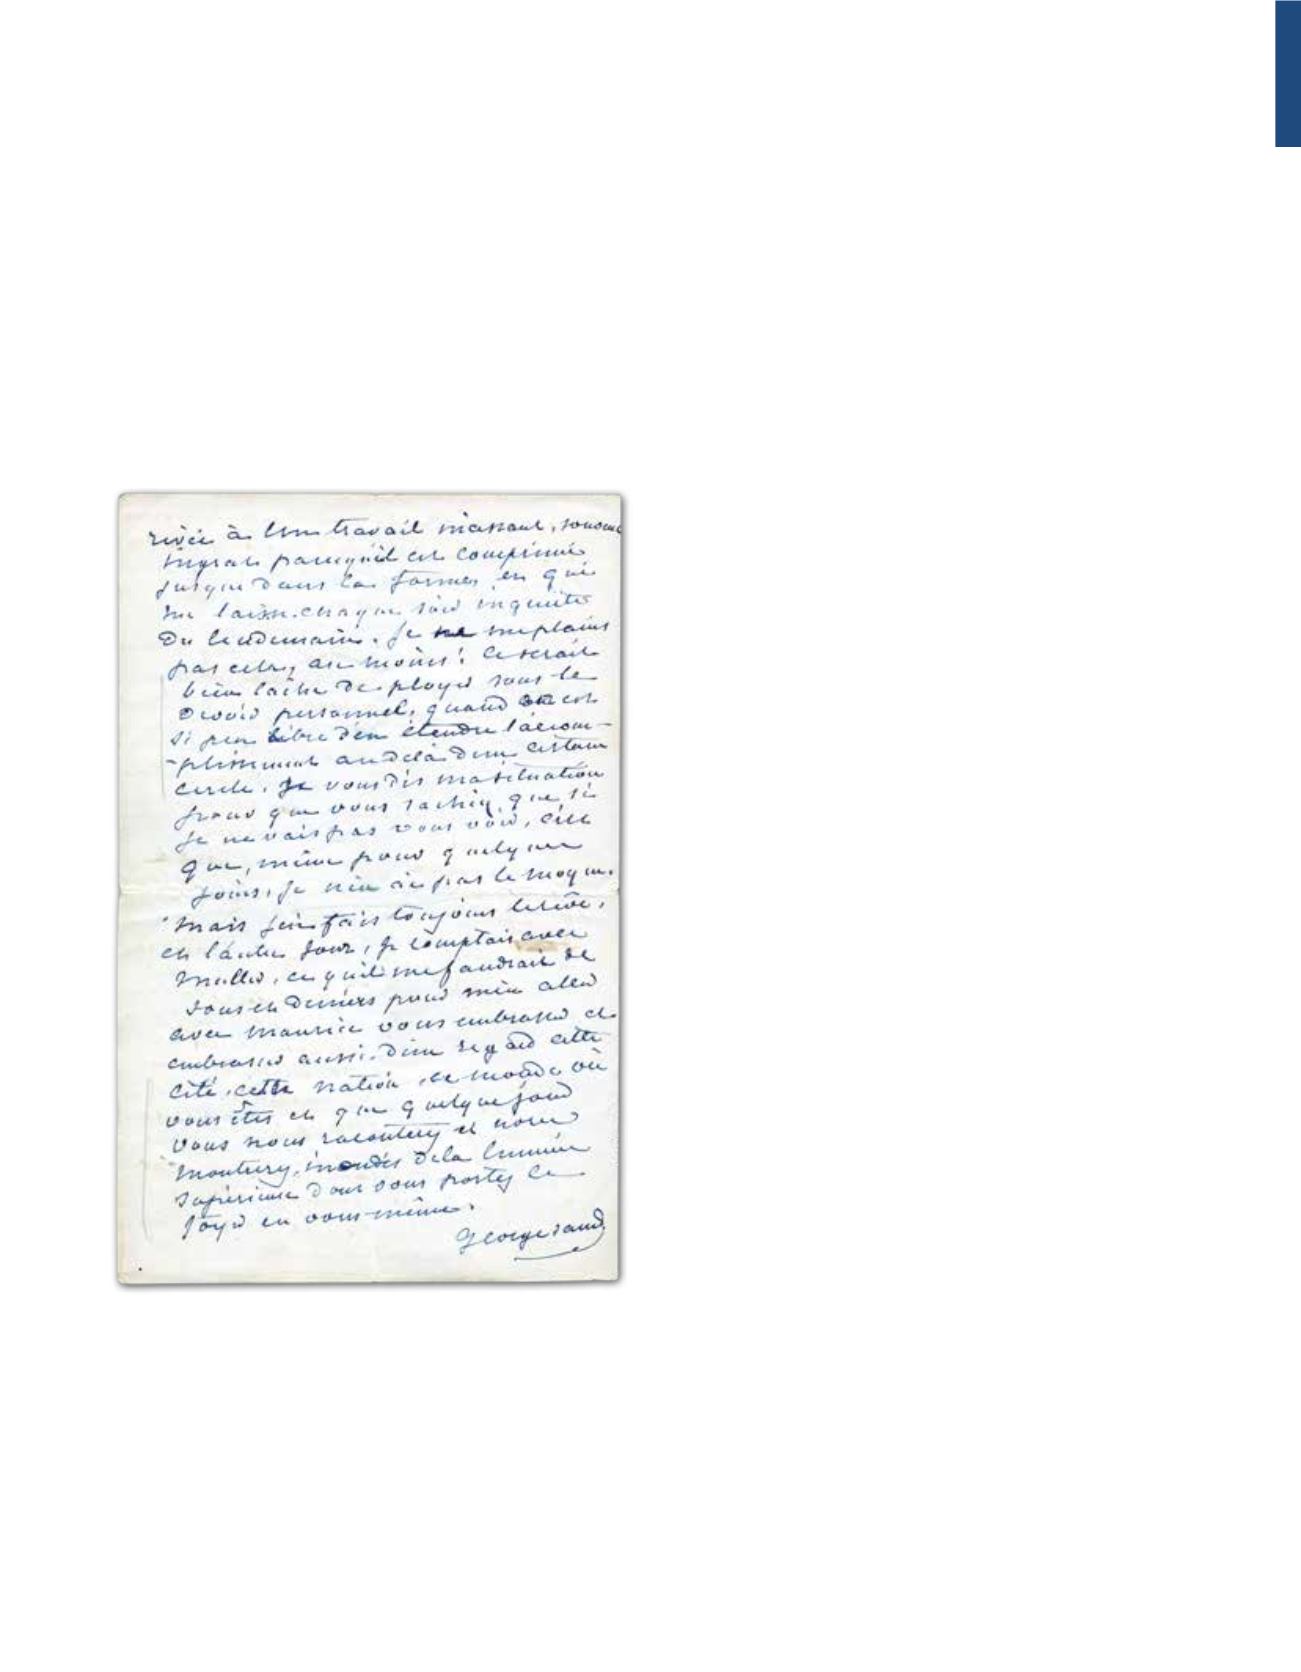 rivée à un travail incessant, souvent
ingrat parcequ'il est comprimé
jusque dans la forme, et qui
me laisse chaque soir inquiète
du lendemain. Je me plains
pas cela, au moins! Ce serait
bien lâche de ployer sous le
devoir personnel, quand on est
si peu libre d'en étendre l'accom-
-plissement au delà d'un certain
cercle. Je vous dis ma situation
pour que vous sachiez que, si
je ne vais pas vous voir, c'est
que, même pour quelques
jours, je n'en ai pas le moyen.
Mais j'en fais toujours le rêve,
et l'autre jour, je comptais avec
Muller, ce qu'il me faudrait de
sous et deniers pour m'en aller
avec Maurice vous embrasser et
embrasser aussi d'un regard cette
cité, cette nation, ce monde où
vous êtes et que quelque jour
vous nous raconterez et nous
montrerez, inondés de la lumière
supérieure dont vous portez le
foyer en vous-même.
George Sand